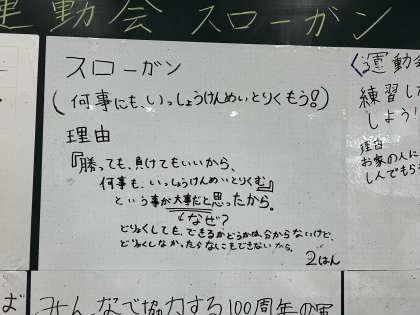 運動会 スローガン
スローガン
(何事にも、いっしょうけんめいとりくもう!)
理由
『勝っても、負けてもいいから、
何事も、いっしょうけんめいとりくむ』
という事が大事だと思ったから。
なぜ?
どりょくしても、できるかどうかは、分からないけど、
どりょくしなかったらなにもできないから。
2はん
運動会
練習し
しよう!
理由
お家の人に
しんでもら
ば
みんなで協力する100周年の運